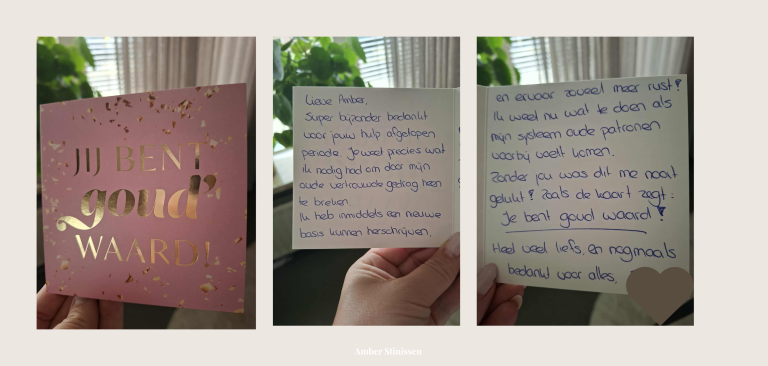 JIJ BENT
goud
WAARD!
Lieve Amber,
Super bijzonder bedankt
voor jouw hulp afgelopen
periode. Je weet precies wat
ik nodig had om door mijn
oude vertrouwde gedrag heen
te breken.
Ik heb inmiddels een nieuwe
basis kunnen herschrijven,
en ervaar zoveel meer rust!
Ik weet nu wat te doen als
mijn systeem oude patronen
voorbij voelt komen.
Zonder jou was dit me nooit
gelukt! Zoals de kaart zegt:
Je bent goud waard!
Heel veel liefs, en nogmaals
bedankt voor alles,
Amber Stinissen